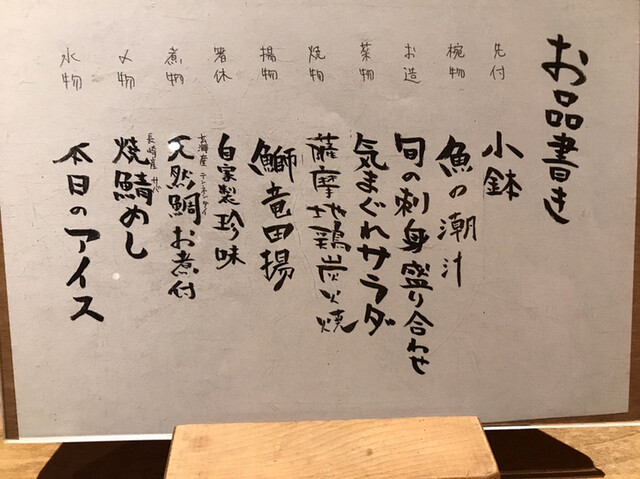 お品書き
先付
小鉢
椀物
魚の潮汁
お造
旬の刺身盛り合わせ
菜物
気まぐれサラダ
焼物
薩摩地鶏炭火焼
揚物
鰤竜田揚
箸休
自家製珍味
煮物
天然鯛お煮付
〆物
長崎産 サバ
焼鯖めし
水物
本日のアイス